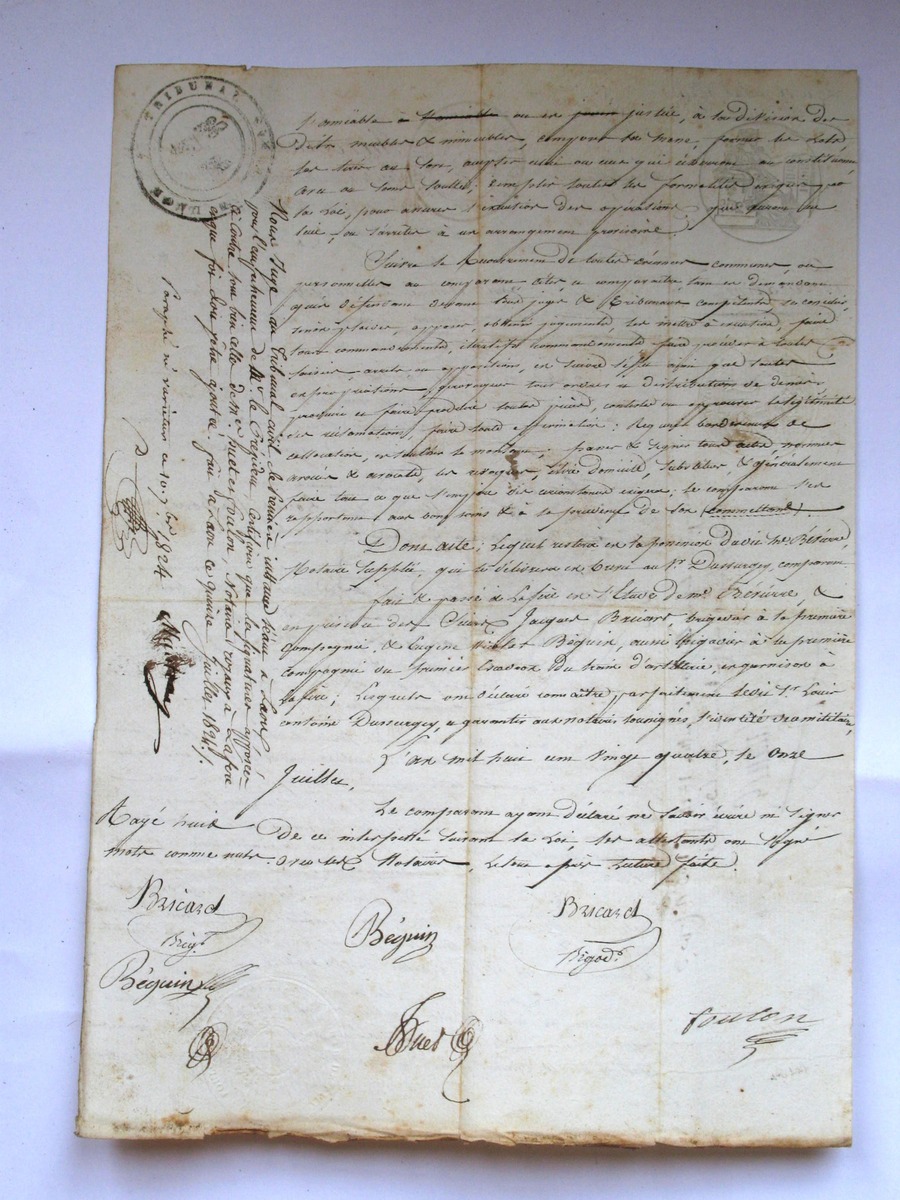 TRIBUNAL
l'amiable ou en justice, à la division des
Biens meubles & immeubles, composer la masse, former les lots,
les tirer au sort, accepter ceux ou celui qui écherront au constituant
avec ou sans soultes, remplir toutes les formalités exigées par
la Loi, pour assurer l'exécution des opérations
ou s'arrêter à un arrangement provisoire.
Suivre le Recouvrement de toutes créances communes, ou
personnelles au comparant citer, & comparaître, tant en demandant
qu'en défendant devant tous juges & Tribunaux compétents, se concilier,
plaider, opposer, obtenir jugements, les mettre à exécution, faire
tous commandements, itératifs commandements faire procéder à toutes
saisies arrêts ou oppositions, en suivre l'effet ainsi que toutes
expropriations, provoquer tous ordres & distributions de deniers
produire et faire produire toutes pièces, contester ou approuver la légitimité
des réclamations, faire toute affirmation; Requérir bordereaux de
collocation, en toucher le montant; passer & signer tous actes nommer
avoués & avocats, les révoquer, élire domicile, substituer & généralement
faire tout ce que l'empire des circonstances exigera, le comparant s'en
rapportant aux bons soins & à la prudence de son (commettant).
Dont acte; Lequel restera en la possession dudit Me.
Notaire suppléé, qui le délivrera en brevet au Sr. Dussurgey, comparant
fait & passé à Lafère en l'étude de me.
en présence des Sieurs Jacques Bricard brigadier à la première
Compagnie, & Eugène Béguin, aussi Brigadier à la première
Compagnie du premier Escadron du train d'artillerie, en garnison à
Lafère; Lesquels ont déclaré connaître parfaitement ledit Sr. Louis
antoine Dussurgey, & garantir aux notaires soussignés,
L'an mil huit cent vingt quatre, le onze
Juillet.
Le comparant ayant déclaré ne savoir écrire ni signer
De ce interpellé suivant la Loi, les attestants ont signé
avec les Notaires, Lecture faite.
Rayé huit
mots comme nuls.
Nous Juge au Tribunal civil de première instance séant à Laon,
pour l'empêchement de Mr. le Président, certifions que la signature apposée
ci contre est bien celle de me. foulon, Notaire royal à Lafère
& que foi doit être ajoutée. fait à Laon ce quinze Juillet 1824.
Paraphé ne varietur ce 10 7bre. 1824
Bricard
Brigr.
Béguin
Bricard
Brigadr.
Béguin
foulon